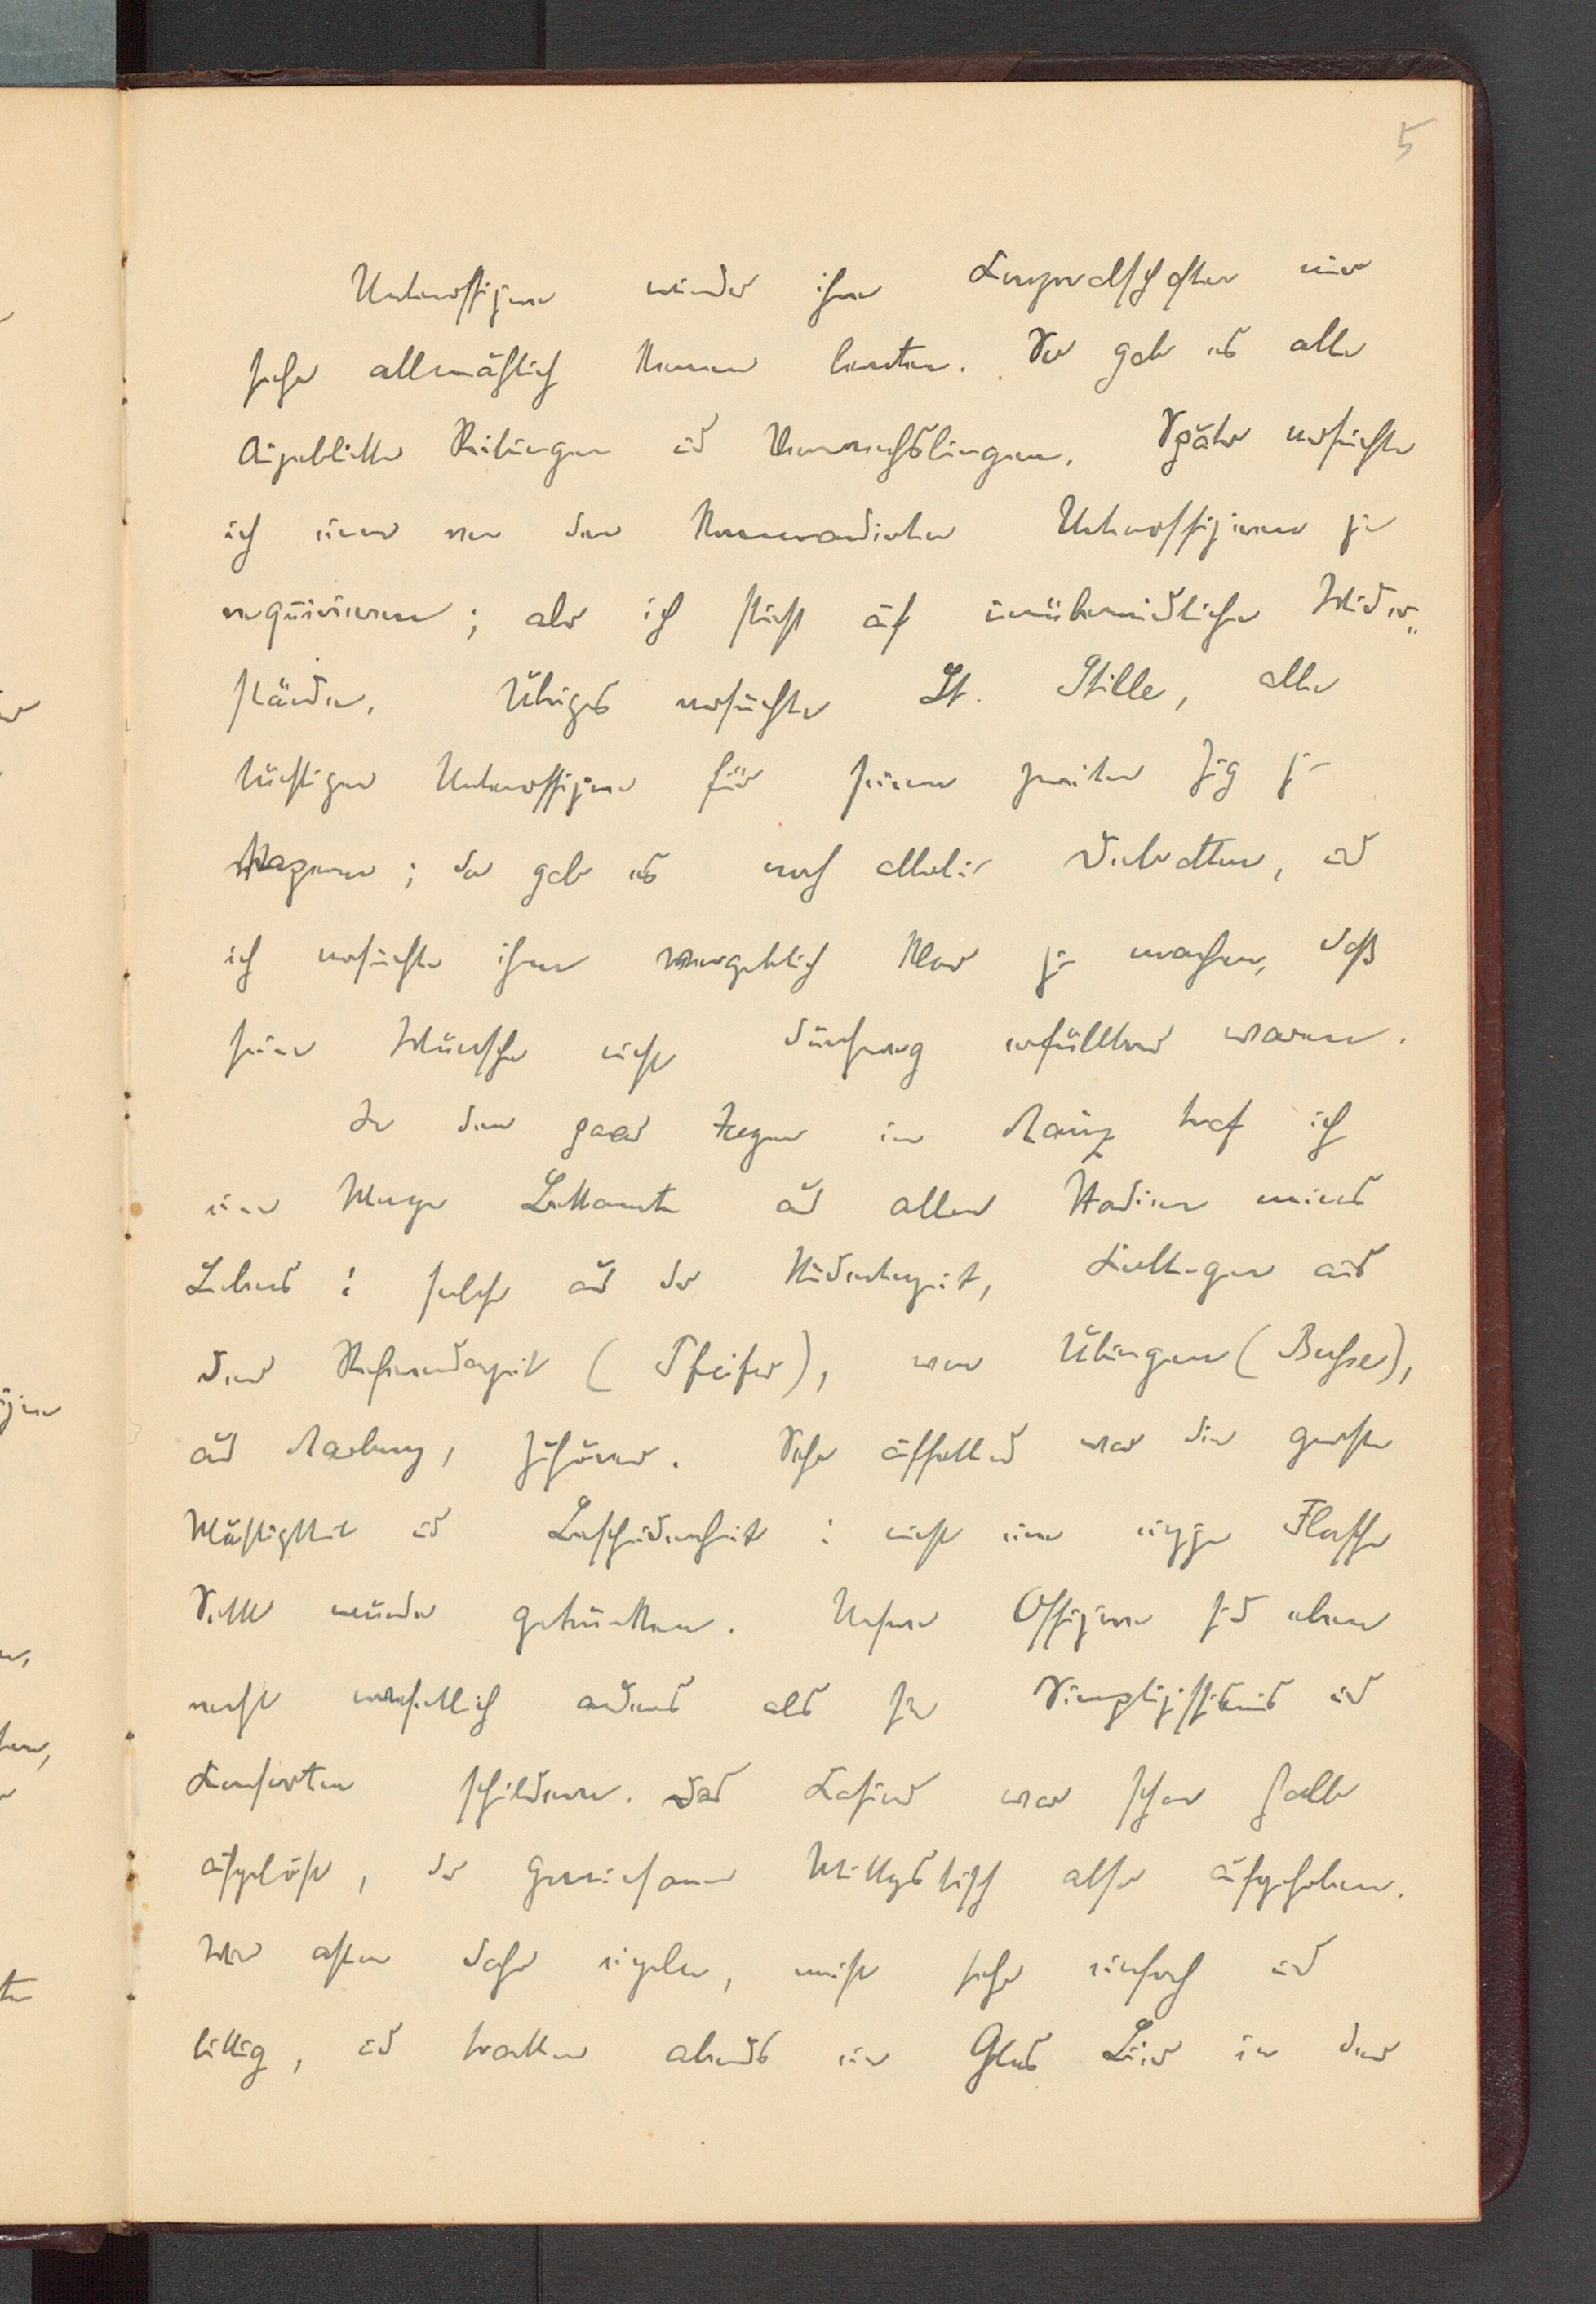 5
Unteroffizieren wieder ihre Korporalschaften nur
sehr allmählich kennen lernten. Da gab es alle
Augenblicke Reibungen und Verwechslungen. Später versuchte
ich einen von den kommandierten Unteroffizieren zu
requirieren; aber ich stieß auf unüberwindliche Wider„
stände. Übrigens versuchte Lt. Stille, alle
tüchtigen Unteroffiziere für seinen zweiten Zug zu
kapern; da gab es noch allerlei Debatten, und
ich versuchte ihm vergeblich klar zu machen, daß
seine Wünsche nicht durchweg erfüllbar waren.
In den paar Tagen in Mainz traf ich
eine Menge Bekannte aus allen Stadien meines
Lebens: solche aus der Studentenzeit, Kollegen aus
der Referendarzeit (Pfeifer), von Übungen (Busse),
aus Marburg, Zuhörer. Sehr auffallend war die große
Mäßigkeit und Bescheidenheit: nicht eine einzige Flasche
Sekt wurde getrunken. Unsere Offiziere sind eben
recht wesentlich anders als sie Simplizissimus und
Konsorten schildern. Das Kasino war schon halb
aufgelöst, der gemeinsame Mittagstisch also aufgehoben.
Wir aßen daher einzeln, meist sehr einfach und
billig, und tranken abends ein Glas Bier in der